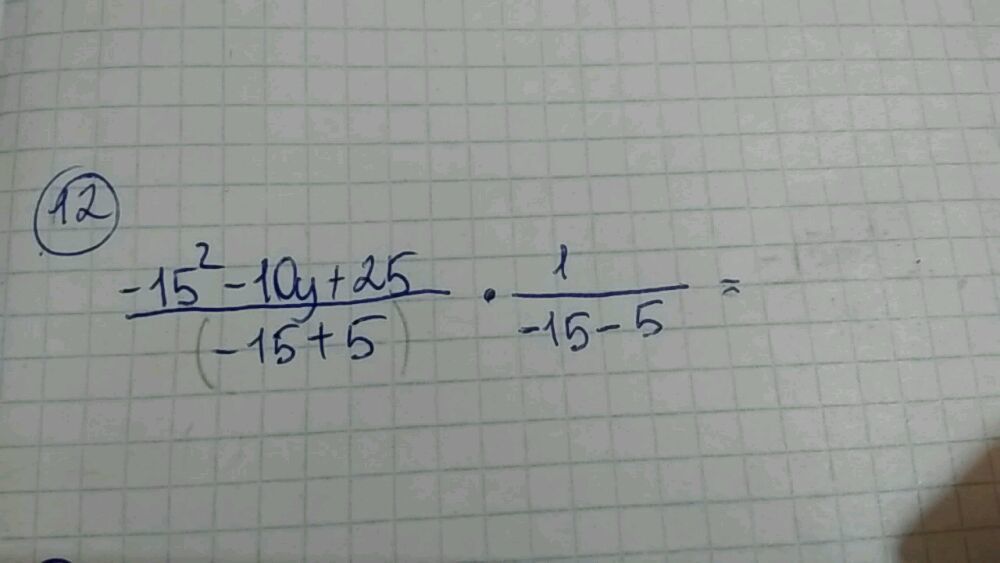 12
-15² - 10y + 25 / (-15 + 5) · 1 / -15 - 5 =